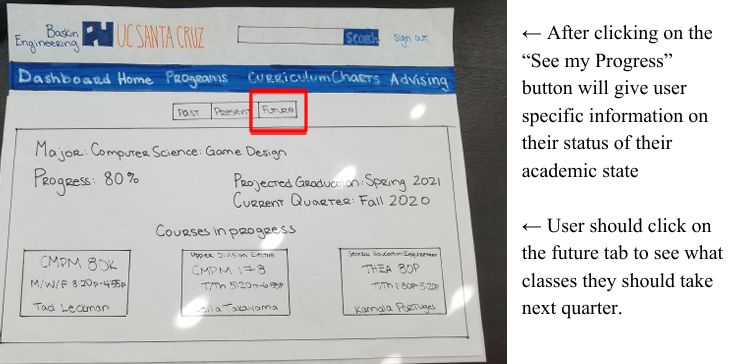 Baskin
Engineering
UC SANTA CRUZ
Search
Sign out
Dashboard Home Programs Curriculum Charts Advising
Past Present Future
Major: Computer Science: Game Design
Progress: 80%
Projected Graduation: Spring 2021
Current Quarter: Fall 2020
Courses in progress
CMPM 80K
M/W/F 3:20p-4:55p
Upper Division Elective
CMPM 178
T/Th 5:20p-6:55p
Leila Takayama
THEA 80P
T/Th 1:30p-3:20p
← After clicking on the
“See my Progress”
button will give user
specific information on
their status of their
academic state
← User should click on
the future tab to see what
classes they should take
next quarter.